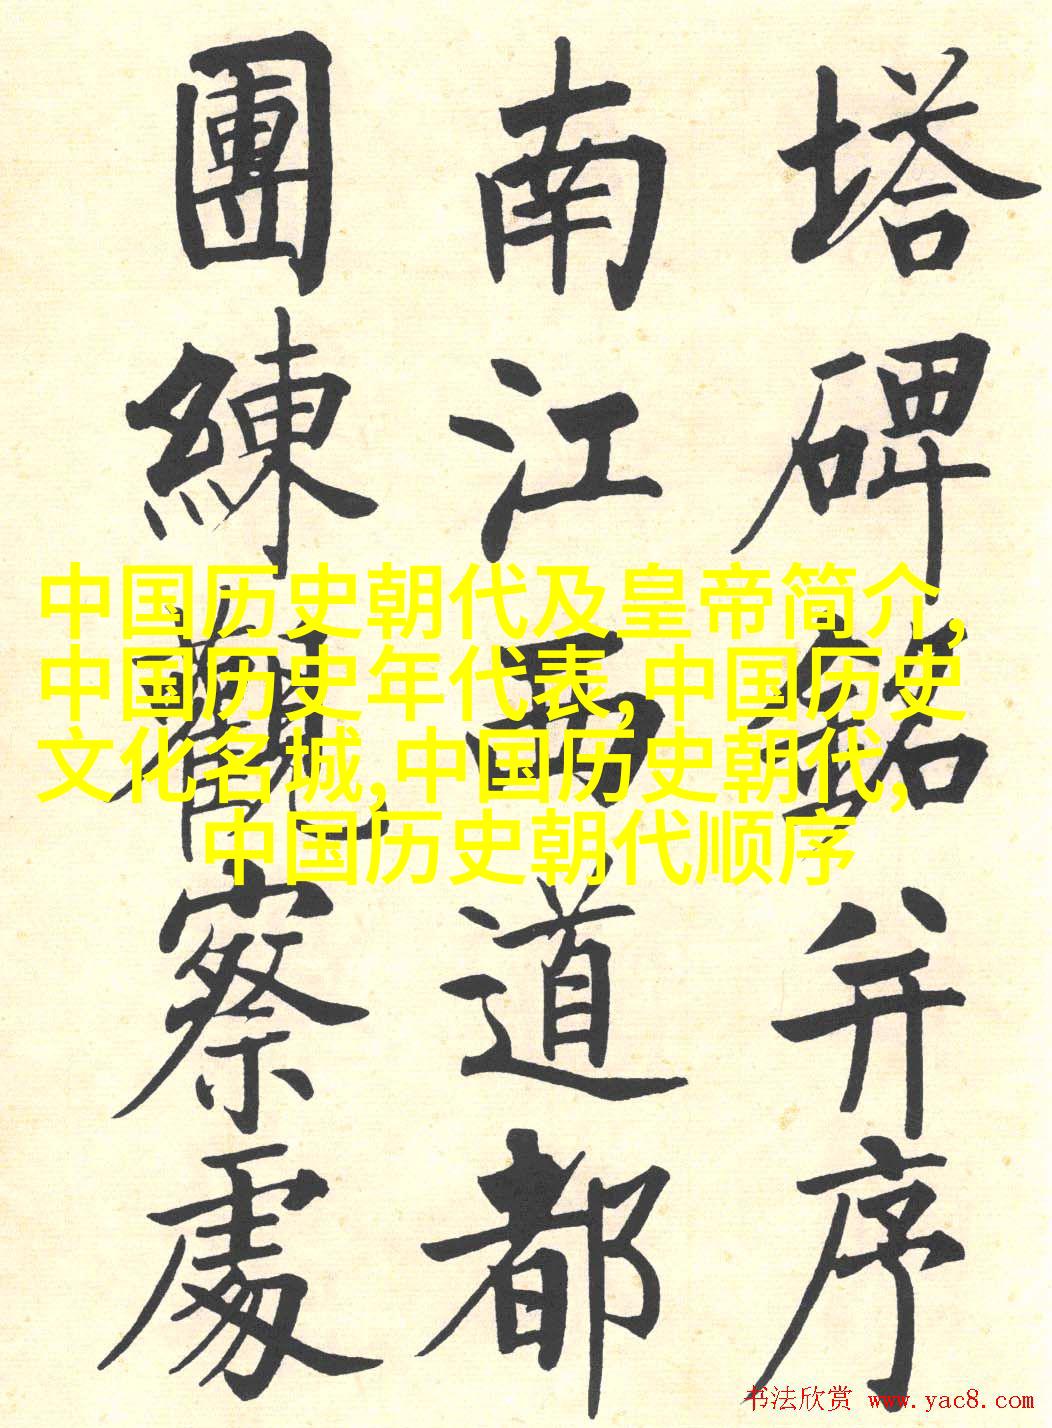 塔碑銘并序
南江西道都
團練觀察處
中国历史朝代及皇帝简介,
中国历史年代表,中国历史
文化名城,中国历史朝代,
中国历史朝代顺序
书法欣赏 www.yac8.com